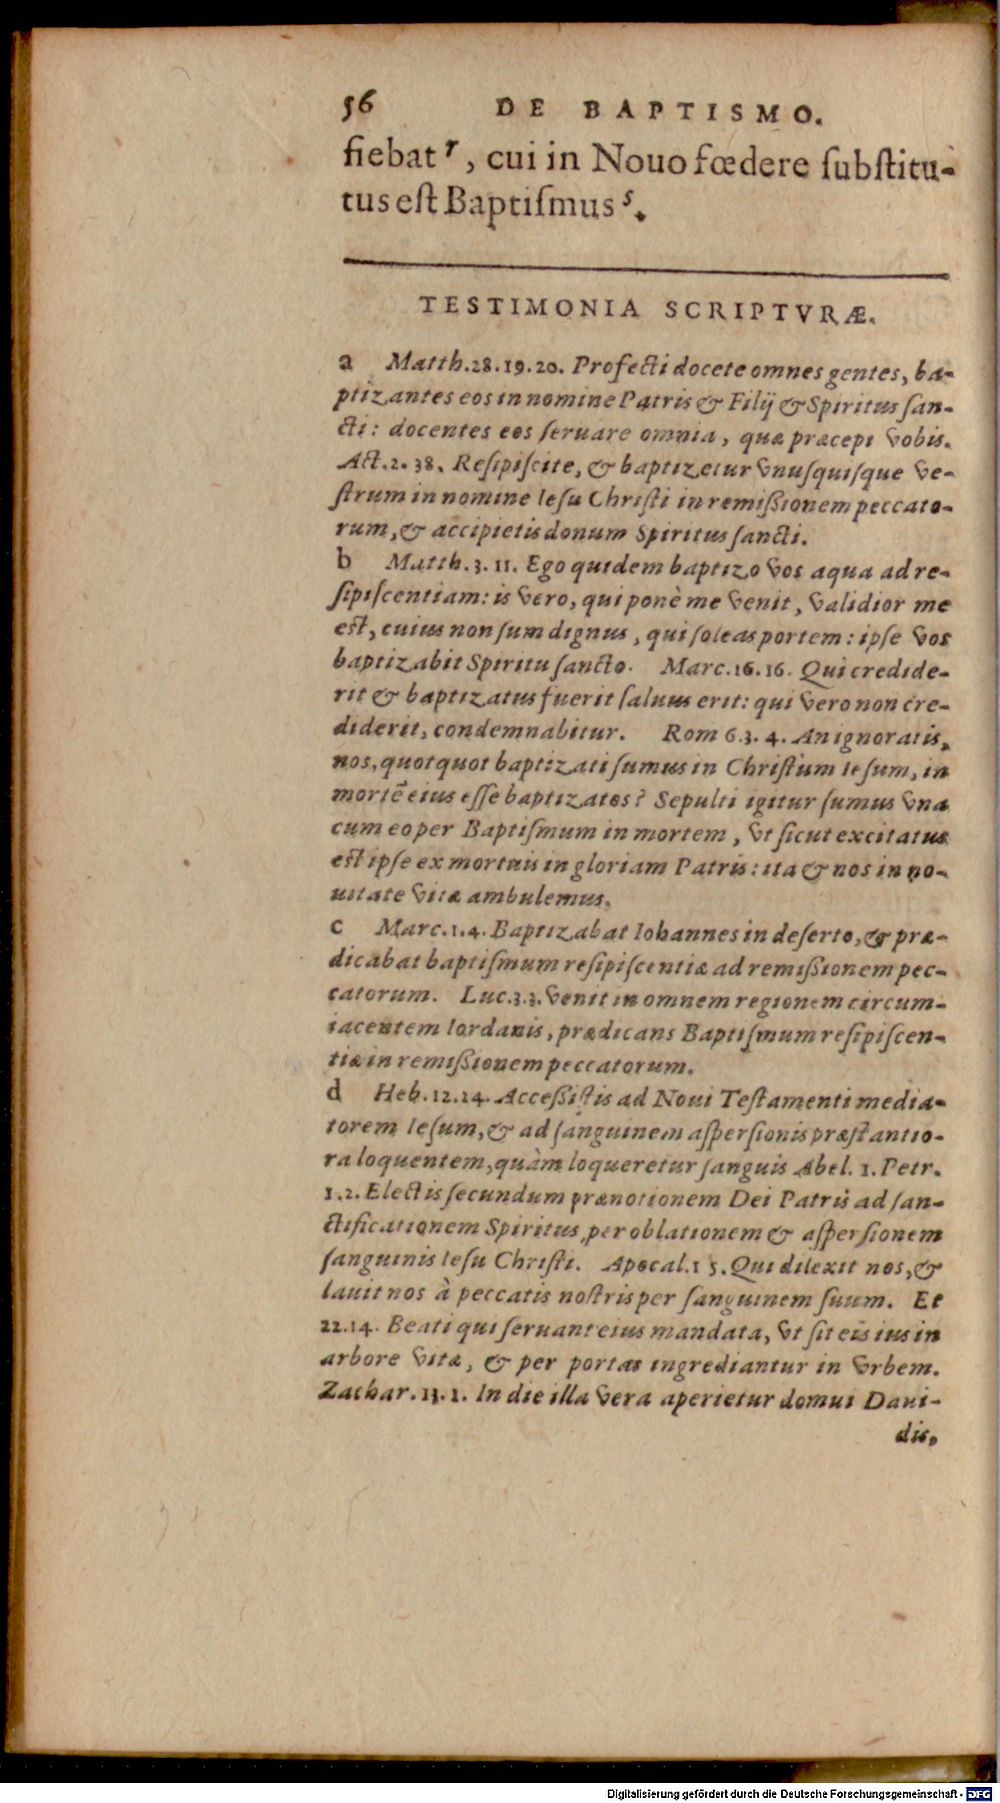 56 DE BAPTISMO.
fiebat r, cui in Nouo fœdere ſubſtitu-
tus eſt Baptiſmus ſ.
TESTIMONIA SCRIPTVRÆ.
a Matth.28.19.20. Profecti docete omnes gentes, ba-
ptizantes eos in nomine Patris & Filij & Spiritus ſan-
cti: docentes eos ſeruare omnia, quæ præcepi vobis.
Act.2.38. Reſipiſcite, & baptizetur vnuſquiſque ve-
ſtrum in nomine Ieſu Chriſti in remißionem peccato-
rum, & accipietis donum Spiritus ſancti.
b Matth.3.11. Ego quidem baptizo vos aqua ad re-
ſipiſcentiam: is vero, qui ponè me venit, validior me
eſt, cuius non ſum dignus, qui ſoleas portem: ipſe vos
baptizabit Spiritu ſancto. Marc.16.16. Qui credide-
rit & baptizatus fuerit ſaluus erit: qui vero non cre-
diderit, condemnabitur. Rom 6.3.4. An ignoratis,
nos, quotquot baptizati ſumus in Chriſtum Ieſum, in
mortē eius eſſe baptizatos? Sepulti igitur ſumus vna
cum eo per Baptiſmum in mortem, vt ſicut excitatus
eſt ipſe ex mortuis in gloriam Patris: ita & nos in no-
uitate vitæ ambulemus.
c Marc.1.4. Baptizabat Iohannes in deſerto, & præ-
dicabat baptiſmum reſipiſcentiæ ad remißionem pec-
catorum. Luc.3.3. Venit in omnem regionem circum-
iacentem Iordanis, prædicans Baptiſmum reſipiſcen-
tiæ in remißionem peccatorum.
d Heb.12.24. Acceßiſtis ad Noui Teſtamenti media-
torem Ieſum, & ad ſanguinem aſperſionis præſtantio-
ra loquentem, quàm loqueretur ſanguis Abel. 1. Petr.
1.2. Electis ſecundum prænotionem Dei Patris ad ſan-
ctificationem Spiritus, per oblationem & aſperſionem
ſanguinis Ieſu Chriſti. Apocal.1 5. Qui dilexit nos, &
lauit nos à peccatis noſtris per ſanguinem ſuum. Et
22.14. Beati qui ſeruant eius mandata, vt ſit eis ius in
arbore vitæ, & per portas ingrediantur in vrbem.
Zachar.13.1. In die illa vera aperietur domui Daui-
dis,
Digitalisierung gefördert durch die Deutsche Forschungsgemeinschaft - DFG